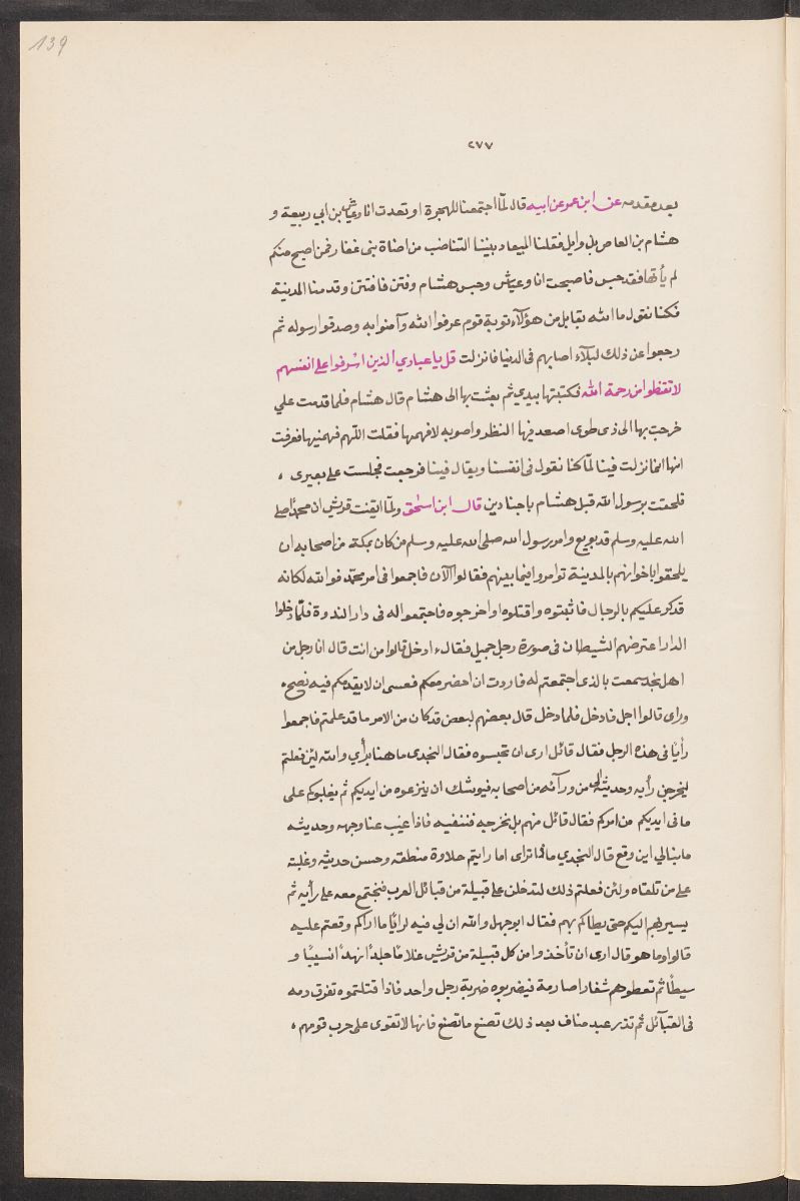 139
٢٧٧
بعد مقدمه عن ابن عمر عن ابيه قال لمّا اجتمعنا للهجرة اوتعدت انا وعياش بن ابي ربيعة و
هشام بن العاص بن وايل فقلنا الميعاد بيننا التناضب من اضاة بنى غفار فمن اصبح منكم
لم يأتها فقد حبس فاصبحت انا وعيّاش وحبس هشام وفتن فافتتن وقدمنا المدينة
فكنا نقول ما الله بقابل من هؤلآء توبة قوم عرفوا الله وآمنوا به وصدقوا رسوله ثم
رجعوا عن ذلك لبلآء اصابهم فى الدنيا فانزلت قل يا عبادي الذين اسرفوا على انفسهم
لا تقنطوا من رحمة الله فكتبتها بيدي ثم بعثت بها الى هشام قال هشام فلما قدمت علي
خرجت بها الى ذى طوى اصعد فيها النظر واصوبه لافهمها فقلت اللّهم فهمنيها فعرفت
انها انما نزلت فينا لمّا كنا نقول فى انفسنا ويقال فينا فرجعت فجلست على بعيرى ،
فلحقت برسول الله قبل هشام باجنادين قال ابن اسحٰق ولمّا ايقنت قريش ان محمدًا صلى
الله عليه وسلم قد بويع وامر رسول الله صلى الله عليه وسلم من كان بمكة من اصحابه ان
يلحقوا باخوانهم بالمدينة توامروا فيما بينهم فقالوا الآن فاجمعوا فى امر محمّد فوالله لكانه
قد كر عليكم بالرجال فاثبتوه واقتلوه او اخرجوه فاجتمعوا له فى دار الندوة فلمّا دخلوا
الدار اعترضهم الشيطان فى صورة رجل جميل فقال ادخل قالوا من انت قال انا رجل من
اهل نجد سمعت بالذى اجتمعتم له فاردت ان احضر معكم فعسى ان لا يقدمكم فيه نصح.
وراى قالوا اجل فادخل فلما دخل قال بعضهم لبعض قد كان من الامر ما قد علمتم فاجمعوا
رأيًا فى هذه الرجل فقال قائل ارى ان تحبسوه فقال النجدى ما هنا برأي والله لئن فعلتم
ليخرجن رأيه وحديثه الى من ورآئه من اصحابه فيوشك ان ينزعوه من ايديكم ثم يغلبوكم على
ما فى ايديكم من امركم فقال قائل منهم بل نخرجه فننفيه فاذا غيب عنا وجهه وحديثه
ما نبالي اين وقع قال النجدي ما هنا براى اما رايتم حلاوة منطقه وحسن حديثه وغلبته
على من تلقاه ولئن فعلتم ذلك لتدخلن على قبيلة من قبائل العرب فتجتمع معه على رأيه ثم
يسير بهم اليكم حتى يطاكم بهم فقال ابو جهل والله ان لي فيه لرايًا ما اراكم وقعتم عليه
قالوا وما هو قال ارى ان تأخذوا من كل قبيلة من قريش غلامًا جلدًا نهدًا نسيبًا و
سيطًا ثم تعطوهم شفارا صارمة فيضربوه ضربة رجل واحد فاذا قتلتموه تفرق دمه
فى القبآئل فلم تدر عبد مناف بعد ذلك تصنع ما تصنع فانها لا تقوى على حرب قومهم ،